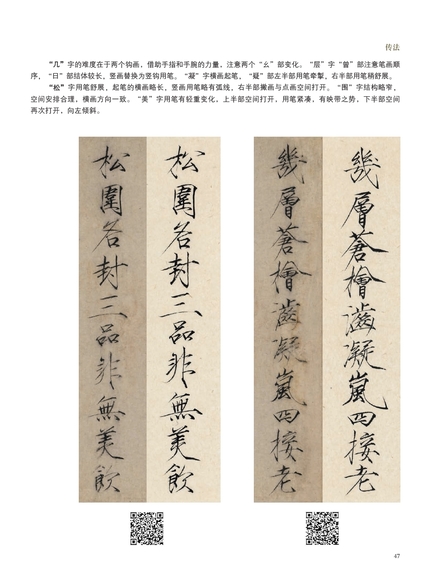 传法
“几”字的难度在于两个钩画，借助手指和手腕的力量，注意两个“幺”部变化。“层”字“曾”部注意笔画顺
序，“日”部结体较长，竖画替换为竖钩用笔。“凝”字横画起笔，“疑”部左半部用笔牵掣，右半部用笔稍舒展。
“松”字用笔舒展，起笔的横画略长，竖画用笔略有弧线，右半部撇画与点画空间打开。“围”字结构略窄，
空间安排合理，横画方向一致。“美”字用笔有轻重变化，上半部空间打开，用笔紧凑，有映带之势，下半部空间
再次打开，向左倾斜。
幾層蒼檜濷凝嵐四接老
幾層蒼檜濷凝嵐四接老
松圍各封三品非無美飲
松圍各封三品非無美飲
47